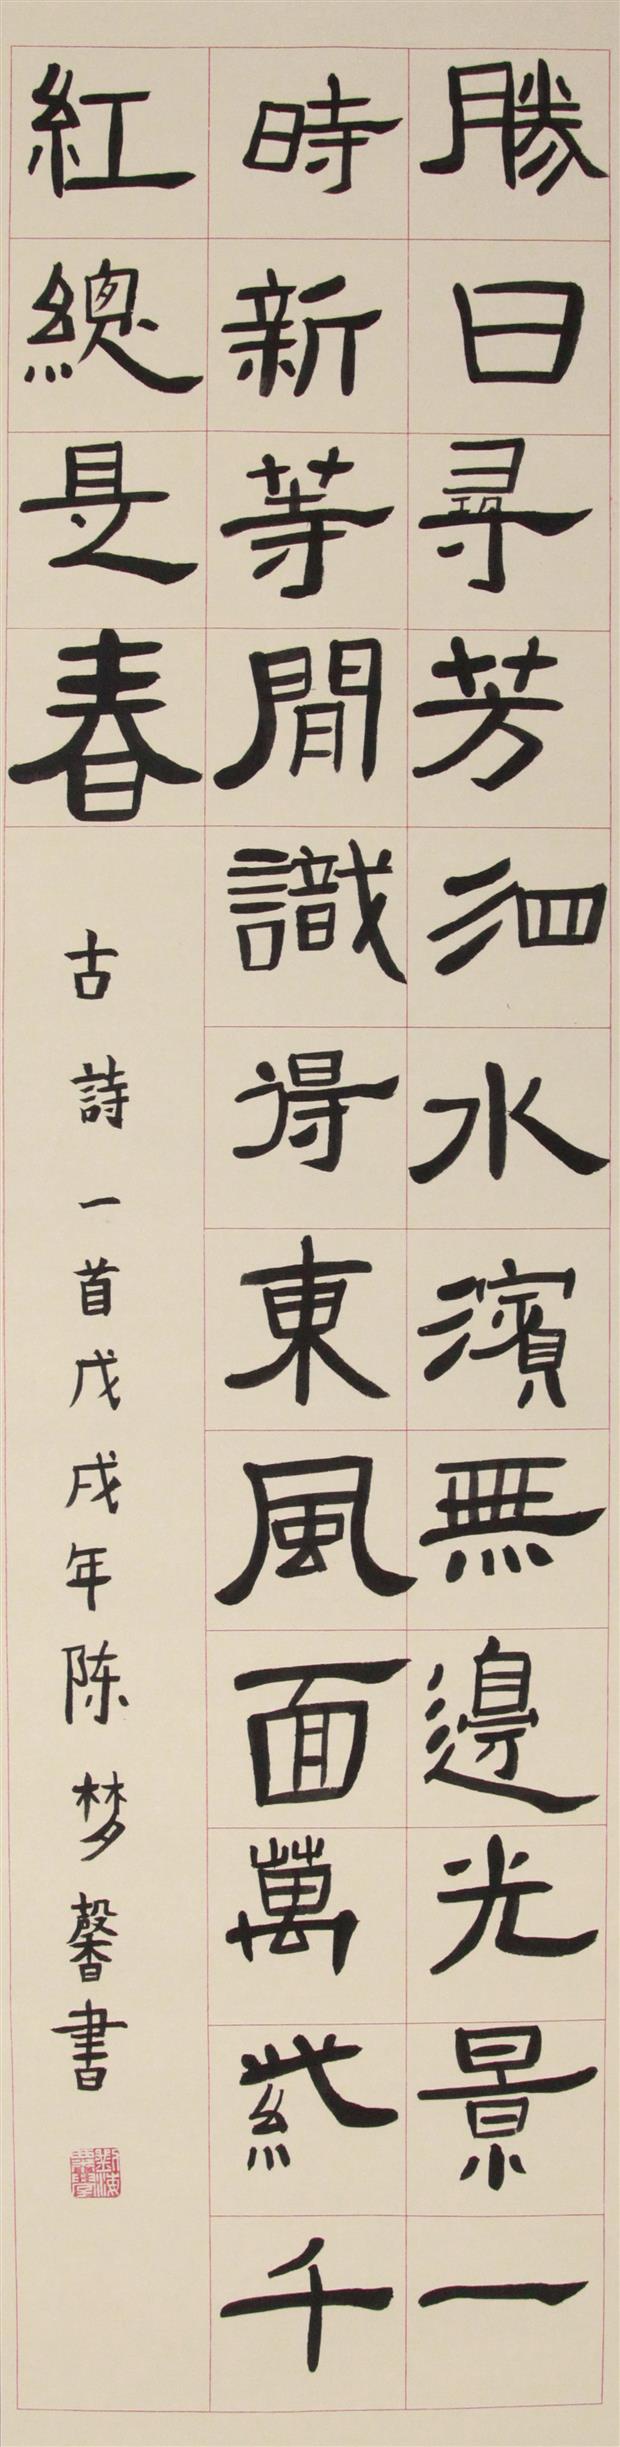 勝日尋芳泗水濱無邊光景一
時新等閒識得東風面萬紫千
紅總是春
古詩一首戊戌年陈梦馨書